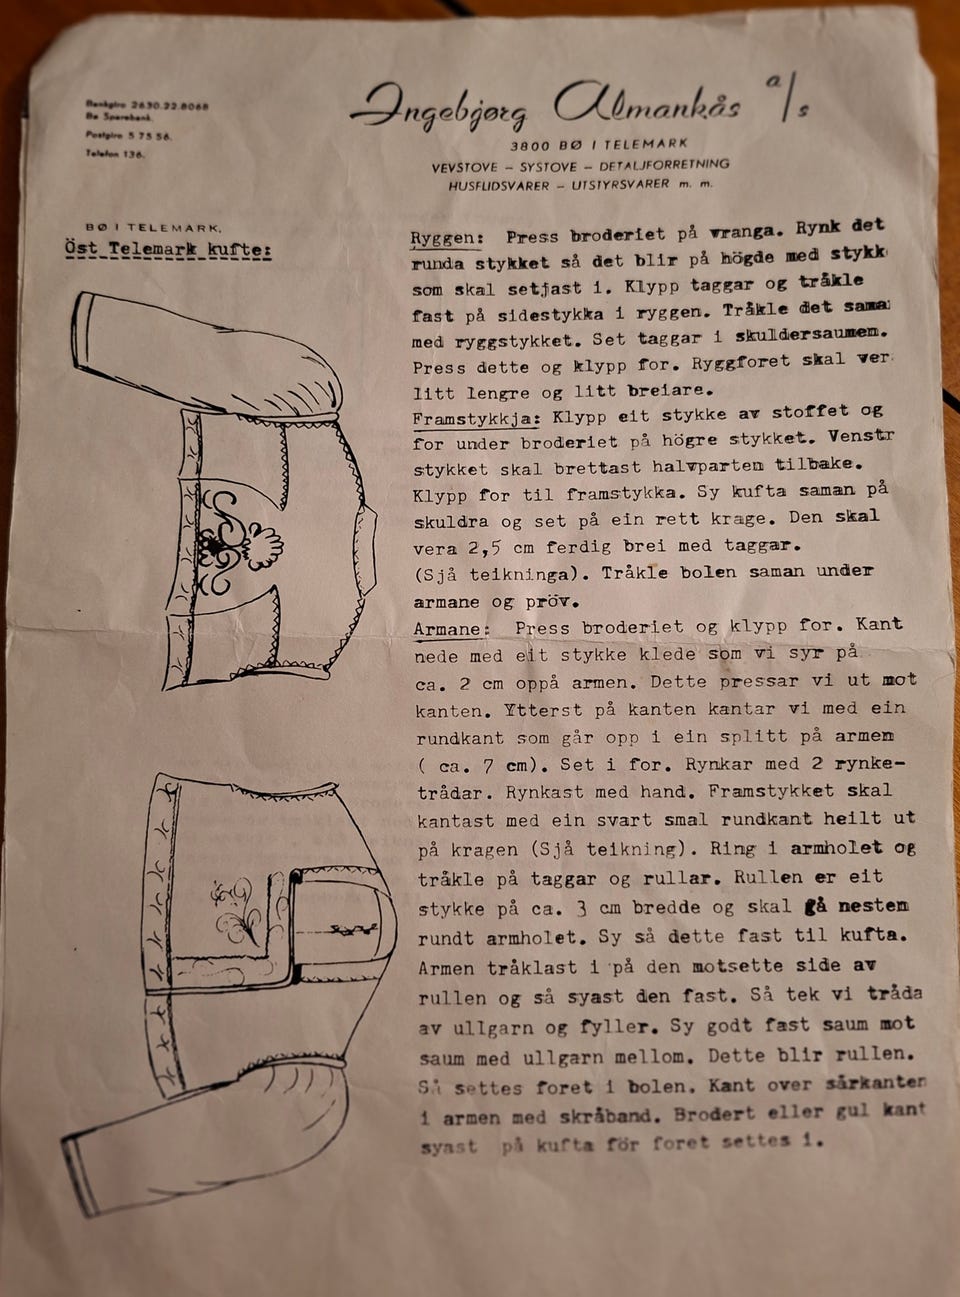 Bankgiro 2630.22.8068
Bø Sparebank.
Postgiro 5 75 56.
Telefon 136.
Ingebjørg Almankås a/s
3800 BØ I TELEMARK
VEVSTOVE – SYSTOVE – DETALJFORRETNING
HUSFLIDSVARER – UTSTYRSVARER m. m.
BØ I TELEMARK,
Öst Telemark kufte:
Ryggen: Press broderiet på vranga. Rynk det
runda stykket så det blir på högde med stykk
som skal setjast i. Klypp taggar og tråkle
fast på sidestykka i ryggen. Tråkle det sama
med ryggstykket. Set taggar i skuldersaumen.
Press dette og klypp for. Ryggforet skal ver
litt lengre og litt breiare.
Framstykkja: Klypp eit stykke av stoffet og
for under broderiet på högre stykket. Venstr
stykket skal brettast halvparten tilbake.
Klypp for til framstykka. Sy kufta saman på
skuldra og set på ein rett krage. Den skal
vera 2,5 cm ferdig brei med taggar.
(Sjå teikninga). Tråkle bolen saman under
armane og pröv.
Armane: Press broderiet og klypp for. Kant
nede med eit stykke klede som vi syr på
ca. 2 cm oppå armen. Dette pressar vi ut mot
kanten. Ytterst på kanten kantar vi med ein
rundkant som går opp i ein splitt på armen
( ca. 7 cm). Set i for. Rynkar med 2 rynke-
trådar. Rynkast med hand. Framstykket skal
kantast med ein svart smal rundkant heilt ut
på kragen (Sjå teikning). Ring i armholet og
tråkle på taggar og rullar. Rullen er eit
stykke på ca. 3 cm bredde og skal gå nesten
rundt armholet. Sy så dette fast til kufta.
Armen tråklast i på den motsette side av
rullen og så syast den fast. Så tek vi tråda
av ullgarn og fyller. Sy godt fast saum mot
saum med ullgarn mellom. Dette blir rullen.
Så settes foret i bolen. Kant over sårkanter
i armen med skråband. Brodert eller gul kant
syast på kufta för foret settes i.